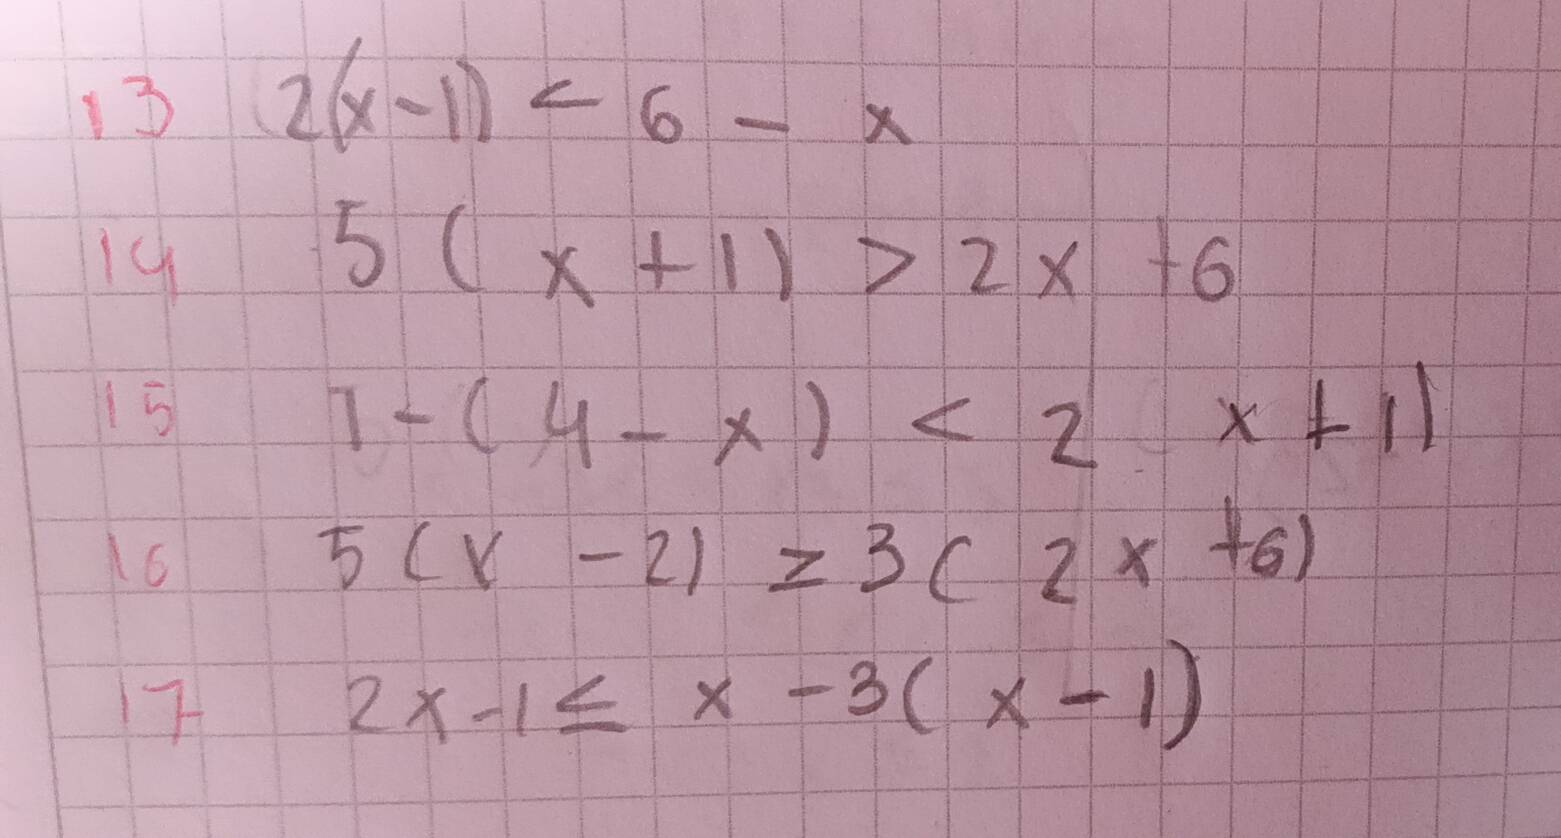 13 2(x-1) < 6 - x
14 5 ( x + 1) > 2x + 6
15 1 - ( 4 - x ) < 2 ( x + 1)
16 5 ( x - 2) ≥ 3 ( 2x + 6)
17 2x - 1 ≤ x - 3( x - 1)